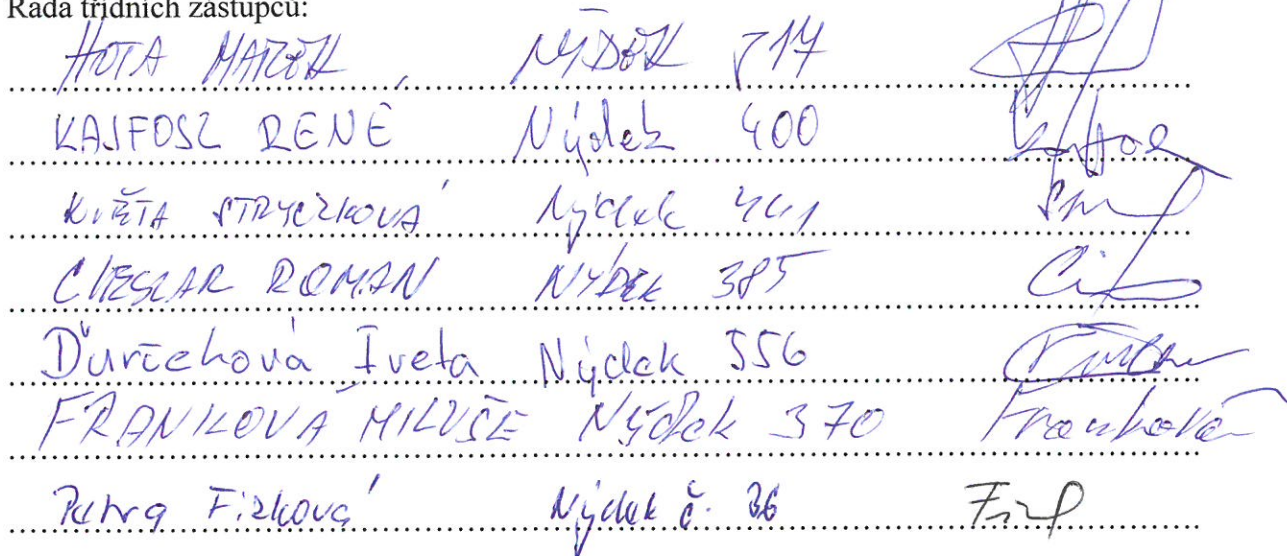 Rada třídních zástupců:
HOTA MAREK, NÝDEK 517
KAJFOSZ RENÉ Nýdek 400
KVĚTA STRYCZKOVÁ Nýdek 441
CIESLAR ROMAN NÝDEK 385
Ďurčeková Iveta Nýdek 556
FRANKOVÁ MILUŠE Nýdek 370 Franková
Petra Fizková Nýdek č. 36